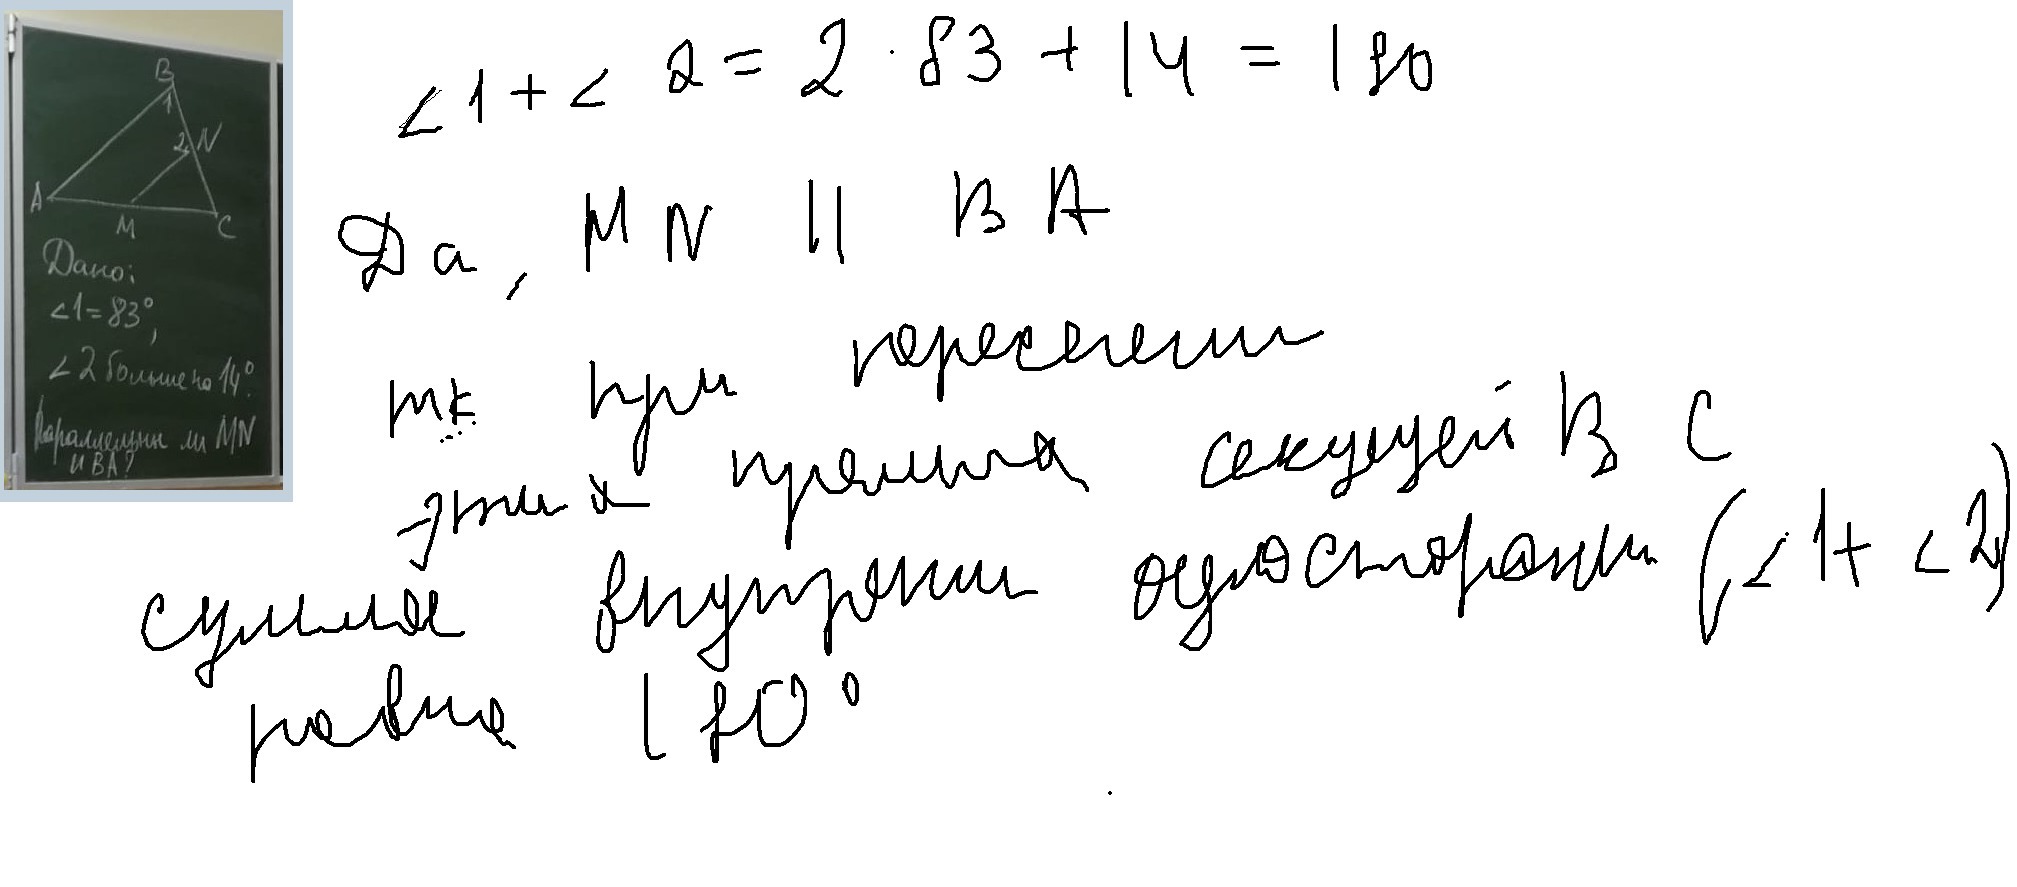 B
1
2
N
A
M
C
Дано:
<1=83°,
<2 больше на 14°.
Параллельны ли MN
и BA?
<1+<2=2·83+14=180
Да, MN || BA
тк при пересечении
этих прямых секущей BC
сумма внутренни односторонни (<1+<2)
равна 180°